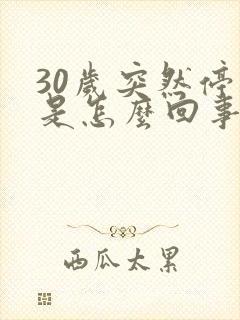 30歲突然停
是怎麼回事
西瓜太累